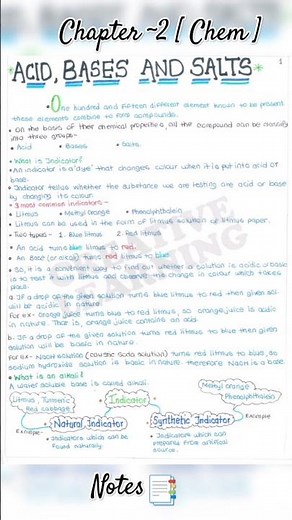 Chapter ~2 [ Chem ]
1
*ACID, BASES AND SALTS*
One hundred and fifteen different element known to be present
these elements combine to form compounds.
• On the basis of their chemical properties, all the compound can be classify
into three groups-
• Acid • Bases • Salts
• What is Indicator?
• An indicator is a 'dye' that changes colour when it is put into acid or
base.
• Indicator tellus whether the substance we are testing are acid or base
by changing its colour.
• 3 most common indicators -
• Litmus • Methyl Orange • Phenolphthalein
• Litmus can be used in the form of litmus solution or litmus paper.
• Two types - 1. Blue litmus 2. Red litmus
• An acid turns blue litmus to red.
• An Base (or alkali) turns red litmus to blue.
• So, it is a convenient way to find out whether a solution is acidic or basic
is to test it with litmus and observe the change in colour which takes
place.
a. If a drop of the given solution turns blue litmus to red then given sol
will be acidic in nature.
For ex- orange juice turns blue litmus to red, so orange juice is acidic
in nature. That is, orange juice contains an acid.
b. If a drop of the given solution turns red litmus to blue then given
solution will be basic in nature.
For ex- NaOH solution (caustic soda solution) turns red litmus to blue, so
sodium hydroxide solution is basic in nature. therefore NaOH is a base
• What is an alkali?
A water soluble base is called alkali.
Litmus, Turmeric
Red cabbage
Indicator
Methyl orange
Phenolphthalein
Natural Indicator
Synthetic Indicator
Example
Example
• Indicators which can be
found naturally
• Indicators which can
prepared from artificial
source.
Notes